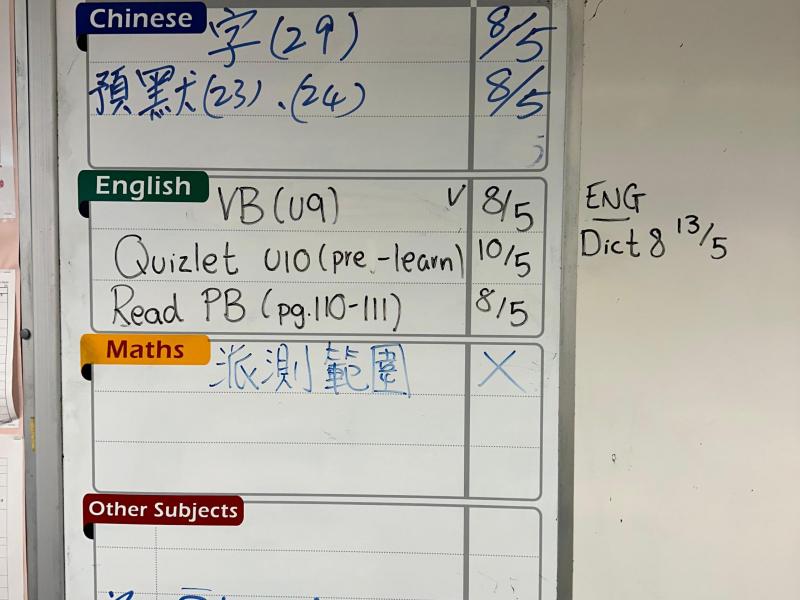 Chinese
字(29) 8/5
預默(23)、(24) 8/5
English
VB(U9) ✓ 8/5
Quizlet U10(pre-learn) 10/5
Read PB (pg.110-111) 8/5
ENG
Dict 8 13/5
Maths
派測範圍 X
Other Subjects